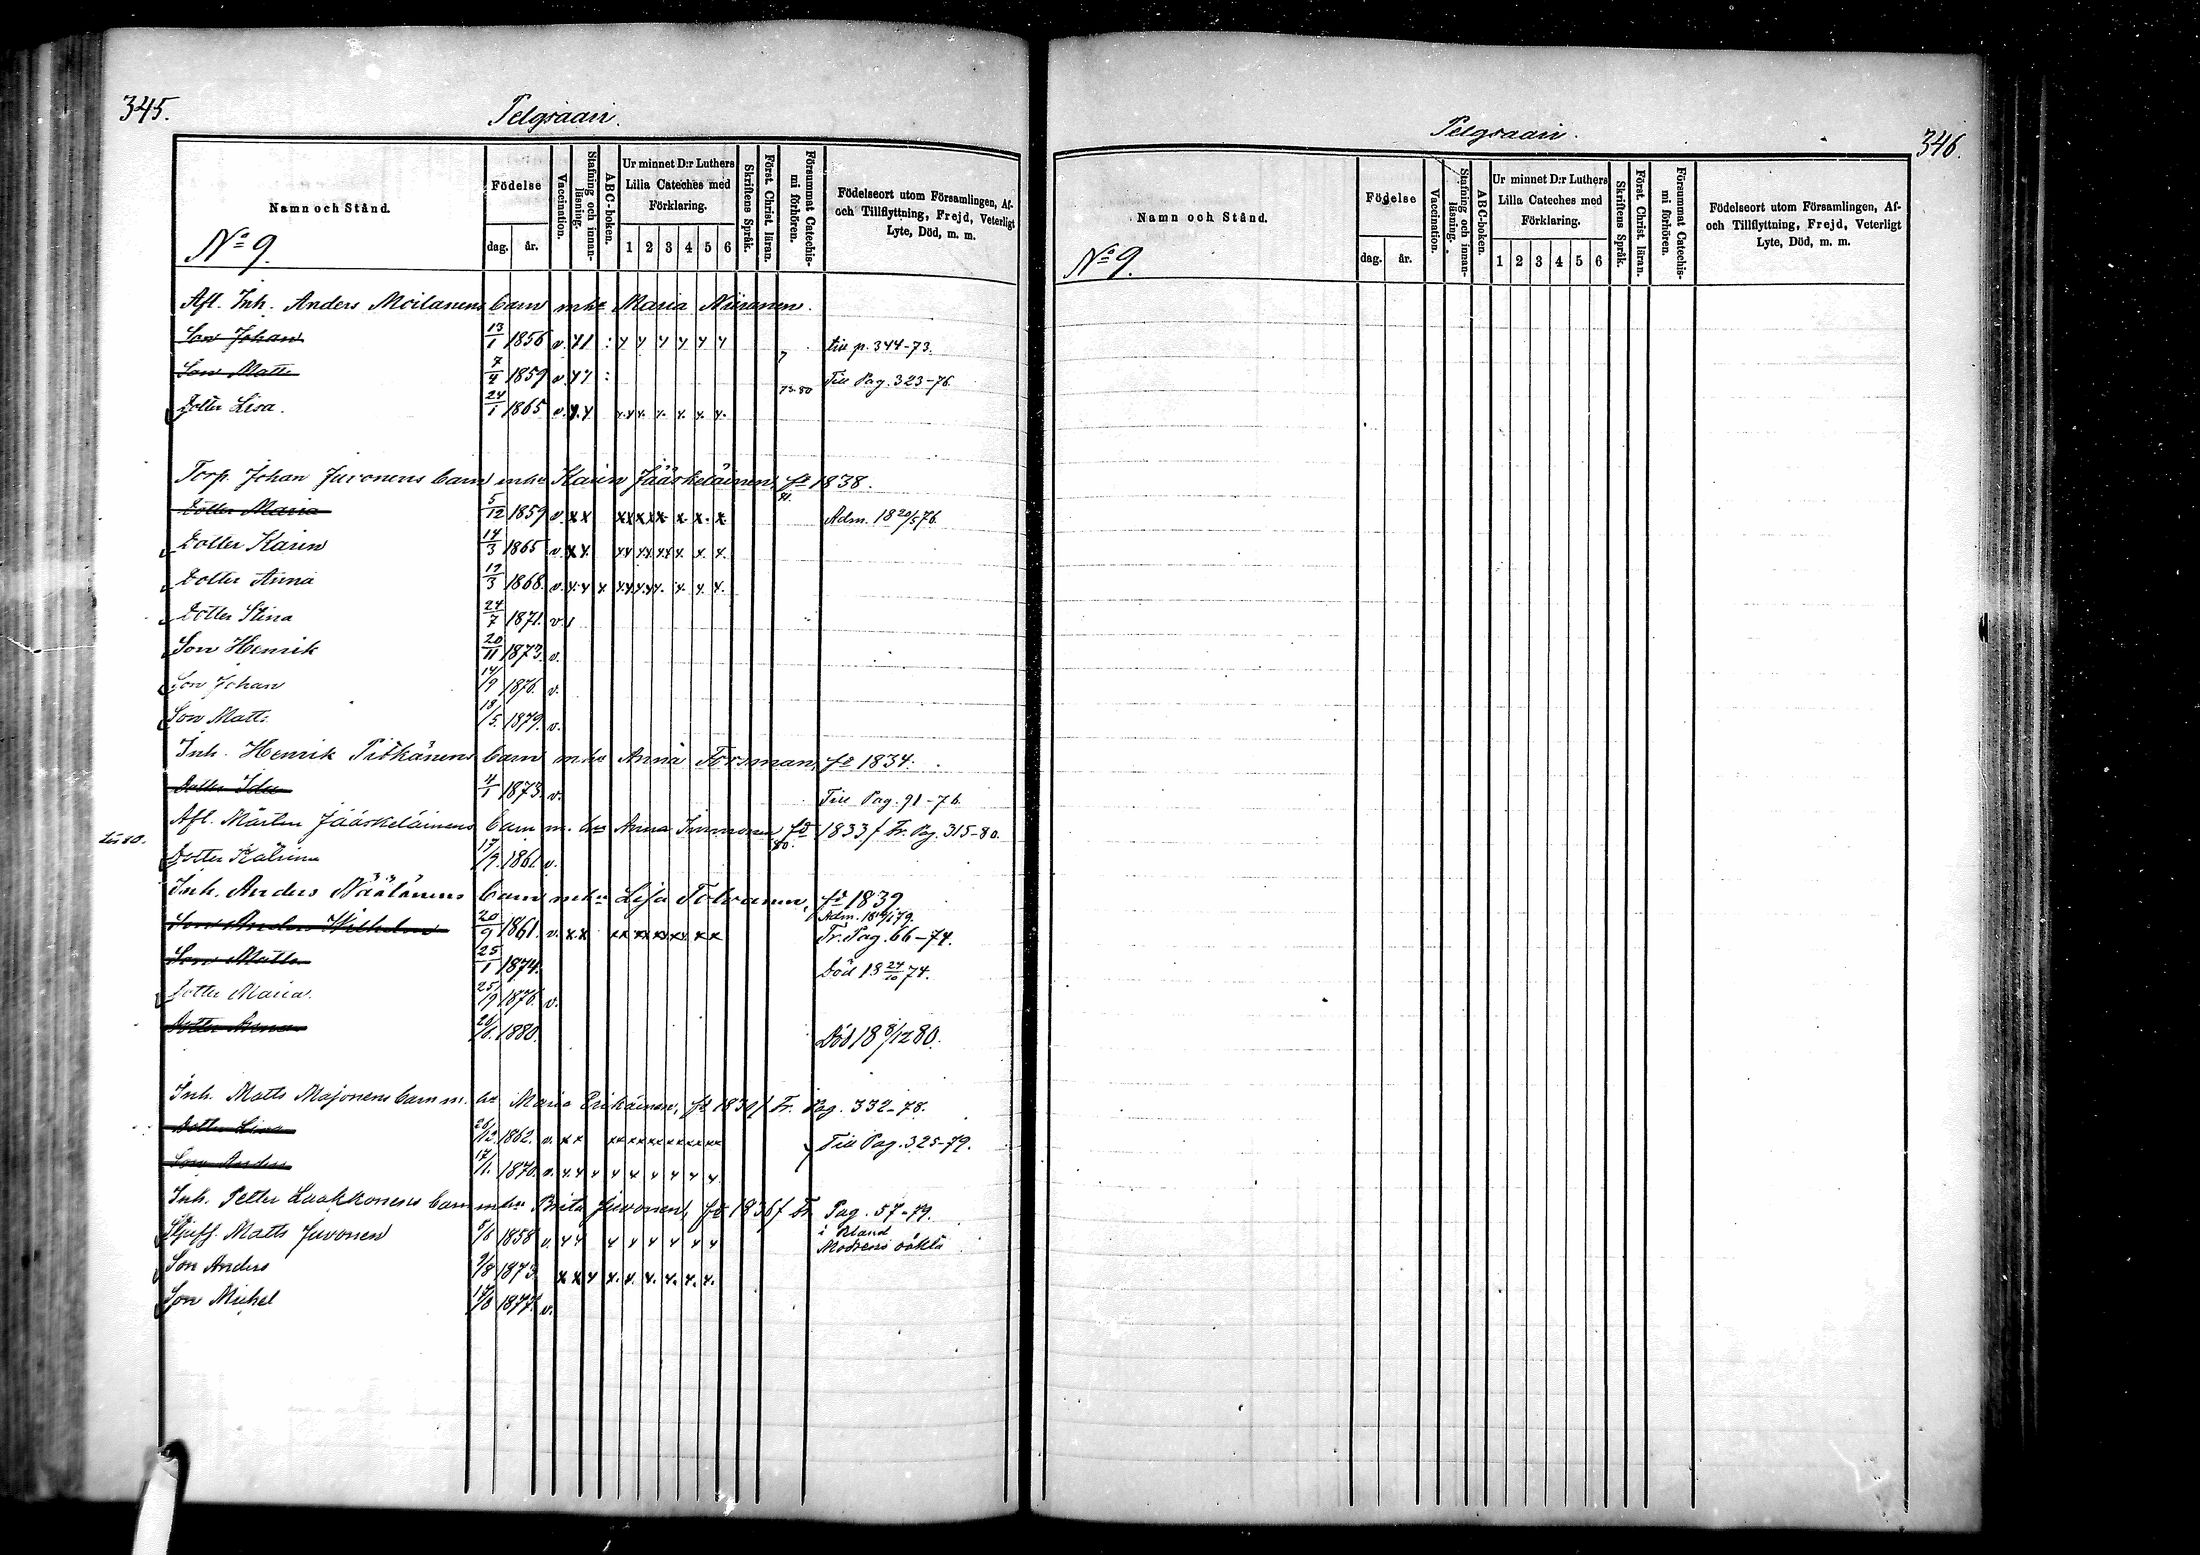 345.
Pelgraari.
Namn och Stånd.
No 9.
Födelse
dag. år.
Vaccination.
Stafning och innanläsning.
ABC-boken.
Ur minnet D:r Luthers Lilla Cateches med Förklaring.
1 2 3 4 5 6
Skriftens Språk.
Först. Christ. läran.
Försummat Catechismi förhören.
Födelseort utom Församlingen, Af- och Tillflyttning, Frejd, Veterligt Lyte, Död, m. m.
Afl. Inh. Anders Moilanens barn m hu Maria Niiranen.
Son Johan 13/1 1856 v. till p. 344-73.
Son Matts 7/4 1859 v. Till Pag. 323-76.
Dotter Lisa. 24/1 1865 v. 73-80
Torp. Johan Juvonens barn m hu Karin Jääskeläinen, fd 1838.
Dotter Maria 5/12 1859 v. Adm. 18 20/5 76.
Dotter Karin 14/3 1865 v.
Dotter Anna 19/3 1868. v.
Dotter Stina 24/7 1871. v.
Son Henrik 20/11 1873. v.
Son Johan 14/9 1876. v.
Son Matts 18/5. 1879. v.
Inh. Henrik Pitkänens barn m hu Anna Forsman, fd 1834.
Dotter Ida 4/1 1873. v. Till Pag. 91-76.
Afl. Mårten Jääskeläinens barn m. hu Anna Immonen fd 1833 / Fr. Pag. 315-80.
Dotter Katrina 17/9 1861 v. 80.
Inh. Anders Näätänens barn m hu Lisa Tolvanen, fd 1839
Son Anders Wilhelm 20/9 1861. v. Fr. Pag. 66-74.
Son Matts 25/1 1874. Död 18 24/10 74.
Dotter Maria. 25/9 1876. v.
Dotter Anna 20/6. 1880. Död 18 8/12 80.
Inh. Matts Majonens barn m. hu Maria Erikäinen, fd 1839 / Fr. Pag. 332-78.
Dotter Lisa 26/12. 1862. v. Till Pag. 325-79.
Son Anders 17/1. 1870. v.
Inh. Petter Laakkonens barn m hu Brita Juvonen, fd 1836 / Fr. Pag. 57-79.
Styfs. Matts Juvonen 5/8 1858 v. Modrens oäkta
Son Anders 9/8 1873.
Son Michel 17/8 1877. v.
346.
Pelgraari.
Namn och Stånd.
No 9.
Födelse
dag. år.
Vaccination.
Stafning och innanläsning.
ABC-boken.
Ur minnet D:r Luthers Lilla Cateches med Förklaring.
1 2 3 4 5 6
Skriftens Språk.
Först. Christ. läran.
Försummat Catechismi förhören.
Födelseort utom Församlingen, Af- och Tillflyttning, Frejd, Veterligt Lyte, Död, m. m.